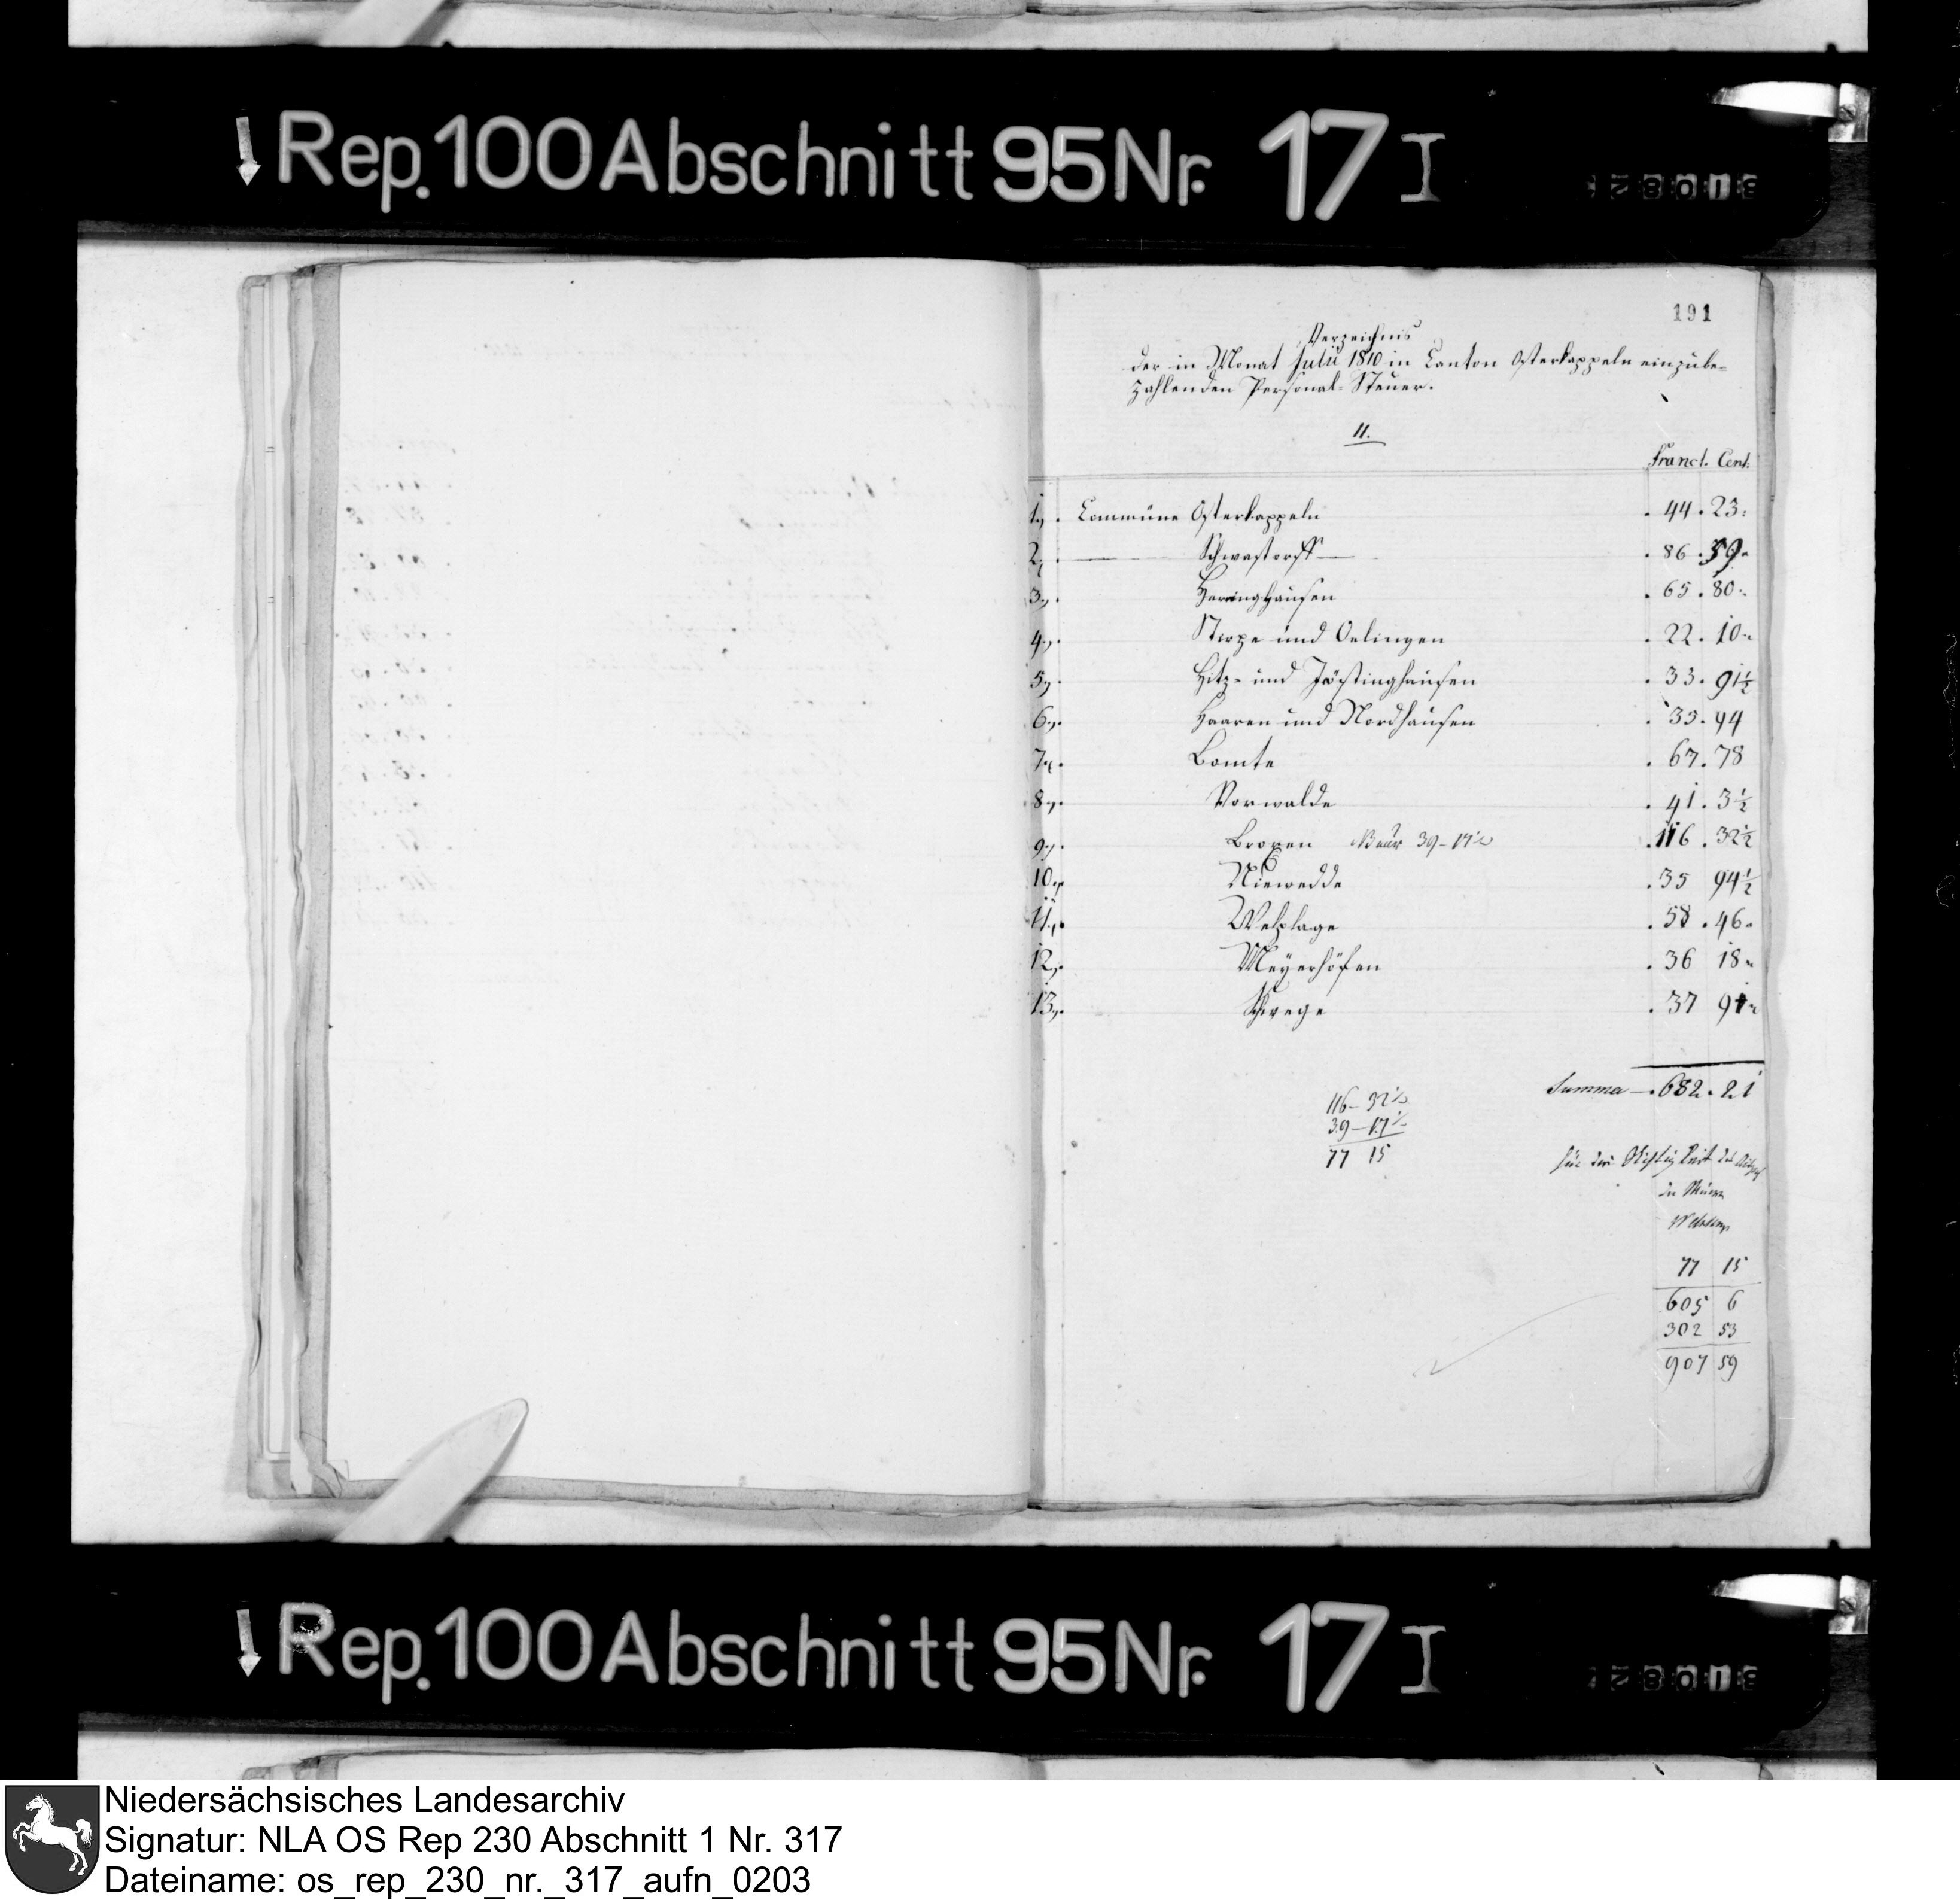 Rep. 100 Abschnitt 95 Nr. 17 I
191
Verzeichnis
der in Monat Julii 1810 in Canton Osterkappeln einzube=
zahlenden Personal-Steuer.
11.
Francs. Cent:
1, Commüne Osterkappeln . 44 . 23
2, — Schwastorff — . 86 . 59
3, Heringhausen . 65 . 80
4, Stirpe und Oelingen . 22 . 10
5, Hitz- und Jöstinghausen . 33 . 91½
6, Haaren und Nordhausen . 35 . 94
7, Bomte . 67 . 78
8, Vorwalde . 41 . 3½
9, Broxen 39 - 17½ . 116 . 32½
10, Niewedde . 35 94½
11, Welplage . 58 . 46
12, Meyerhöfen . 36 18
13, Schwege . 37 91
Summa — . 682 . 21
116 - 32½
39 - 17½
77 15
für die Richtigkeit des
77 15
605 6
302 53
907 59
Rep. 100 Abschnitt 95 Nr. 17 I
Niedersächsisches Landesarchiv
Signatur: NLA OS Rep 230 Abschnitt 1 Nr. 317
Dateiname: os_rep_230_nr._317_aufn_0203